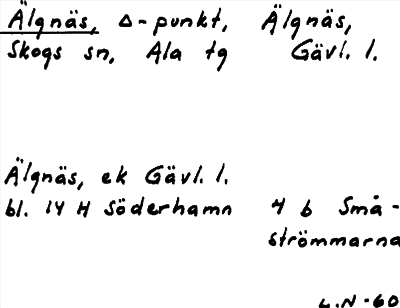 Älgnäs, Δ-punkt, Älgnäs,
Skogs sn, Ala tg Gävl. l.
Älgnäs, ek Gävl. l.
bl. 14 H Söderhamn 4 b Små-
strömmarna
L.N-60